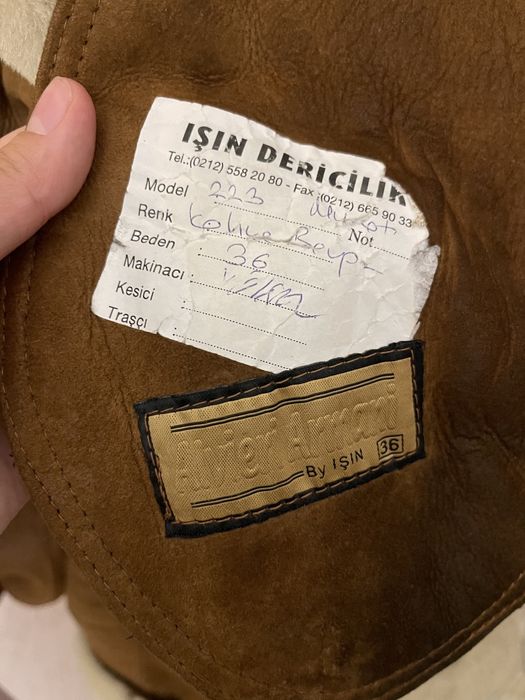 IŞIN DERİCİLİK
Tel.:(0212) 558 20 80 - Fax :(0212) 665 90 33
Model : 223
Renk : Kahve Beyaz Not
Beden : 36
Makinacı :
Kesici :
Traşçı :
Alvieri Armani
By IŞIN 36